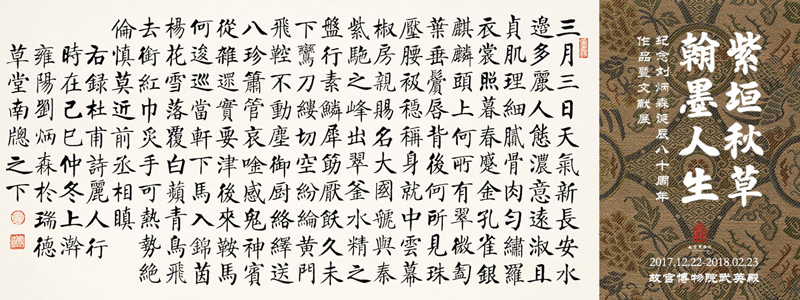 三月三日天氣新長安水
邊多麗人態濃意遠淑且
貞肌理細膩骨肉勻繡羅
衣裳照暮春蹙金孔雀銀
麒麟頭上何所有翠微匎
葉垂鬢唇背後何所見珠
壓腰衱穩稱身就中雲幕
椒房親賜名大國虢與秦
紫駞之峰出翠釜水精之
盤行素鱗犀筯厭飫久未
下鸞刀縷切空紛綸黃門
飛鞚不動塵御厨絡繹送
八珍簫管哀唫感鬼神賓
從雜遝實要津後來鞍馬
何逡巡當軒下馬入錦茵
楊花雪落覆白蘋青鳥飛
去銜紅巾炙手可熱勢絶
倫慎莫近前丞相瞋
右録杜甫詩麗人行
時在己巳仲冬上澣
雍陽劉炳森於瑞德
草堂南牕之下
紫垣秋草
翰墨人生
纪念刘炳森诞辰八十周年
作品暨文献展
2017.12.22-2018.02.23
故宫博物院武英殿